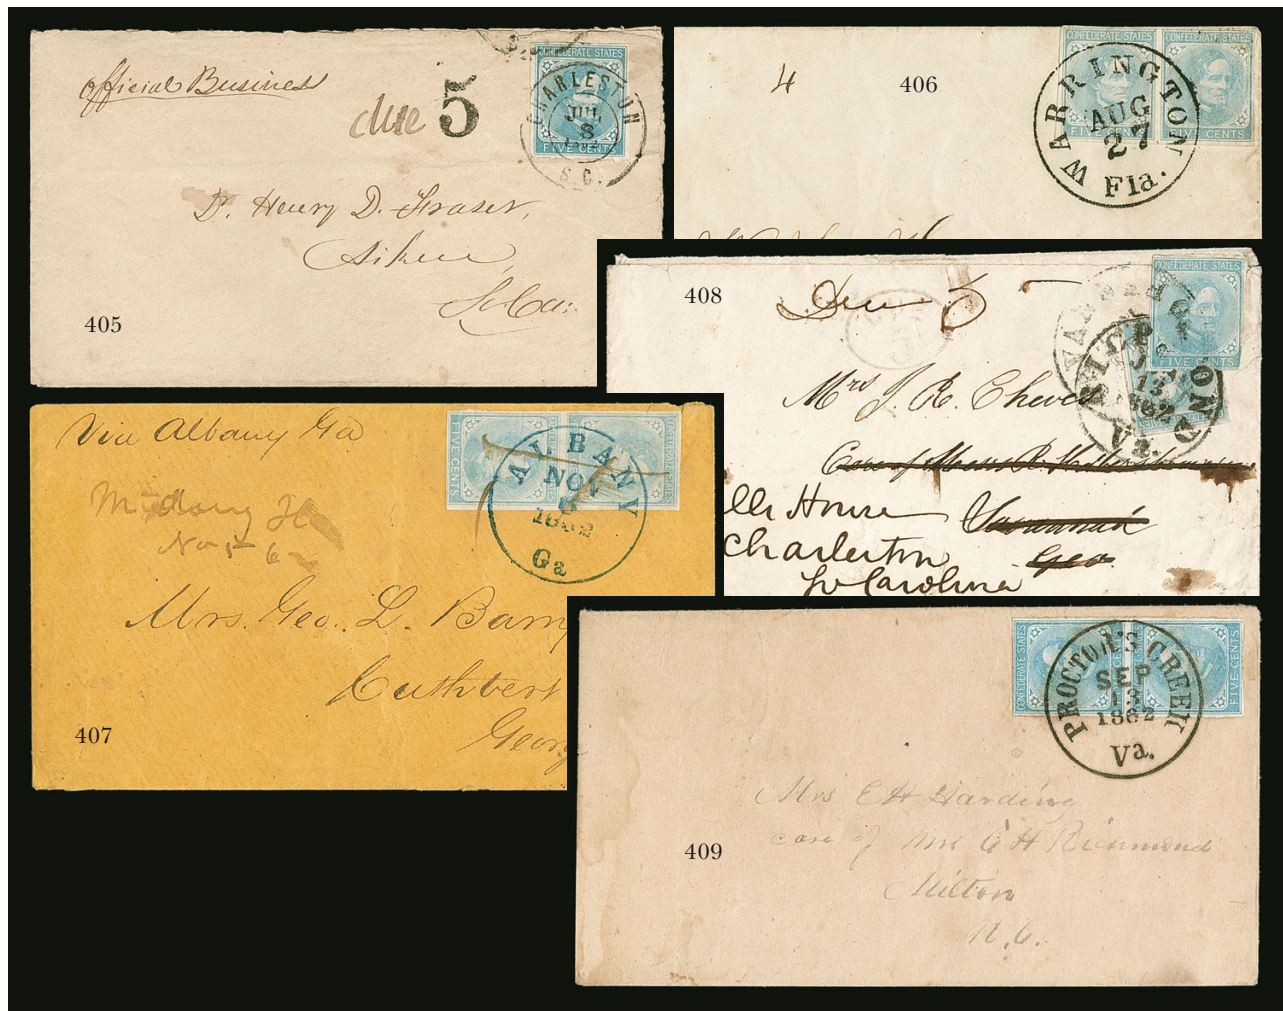 Official Business
due 5
CONFEDERATE STATES
FIVE CENTS
CHARLESTON
JUL
8
S.C.
Dr. Henry D. Fraser,
Aiken
So. Ca:
405
4
406
CONFEDERATE STATES
CONFEDERATE STATES
FIVE CENTS
FIVE CENTS
WARRINGTON
AUG
27
Fla.
408
Due 5
CONFEDERATE STATES
FIVE CENTS
SAVANNAH
RICHMOND
13
1862
Va.
Mrs J. R. Cheves
Care of
Savannah
Geo
House
Charleston
So Carolina
Via Albany Ga
FIVE CENTS
ALBANY
NOV
6
1862
Ga
Nov 62
Mrs. Geo. L. Barry
Cuthbert
Georg
407
CONFEDERATE STATES
FIVE CENTS
CONFEDERATE STATES
FIVE CENTS
PROCTOR'S CREEK
SEP
13
1862
Va.
Mrs E H Harding
care of Mrs C H Richmond
Milton
N.C.
409